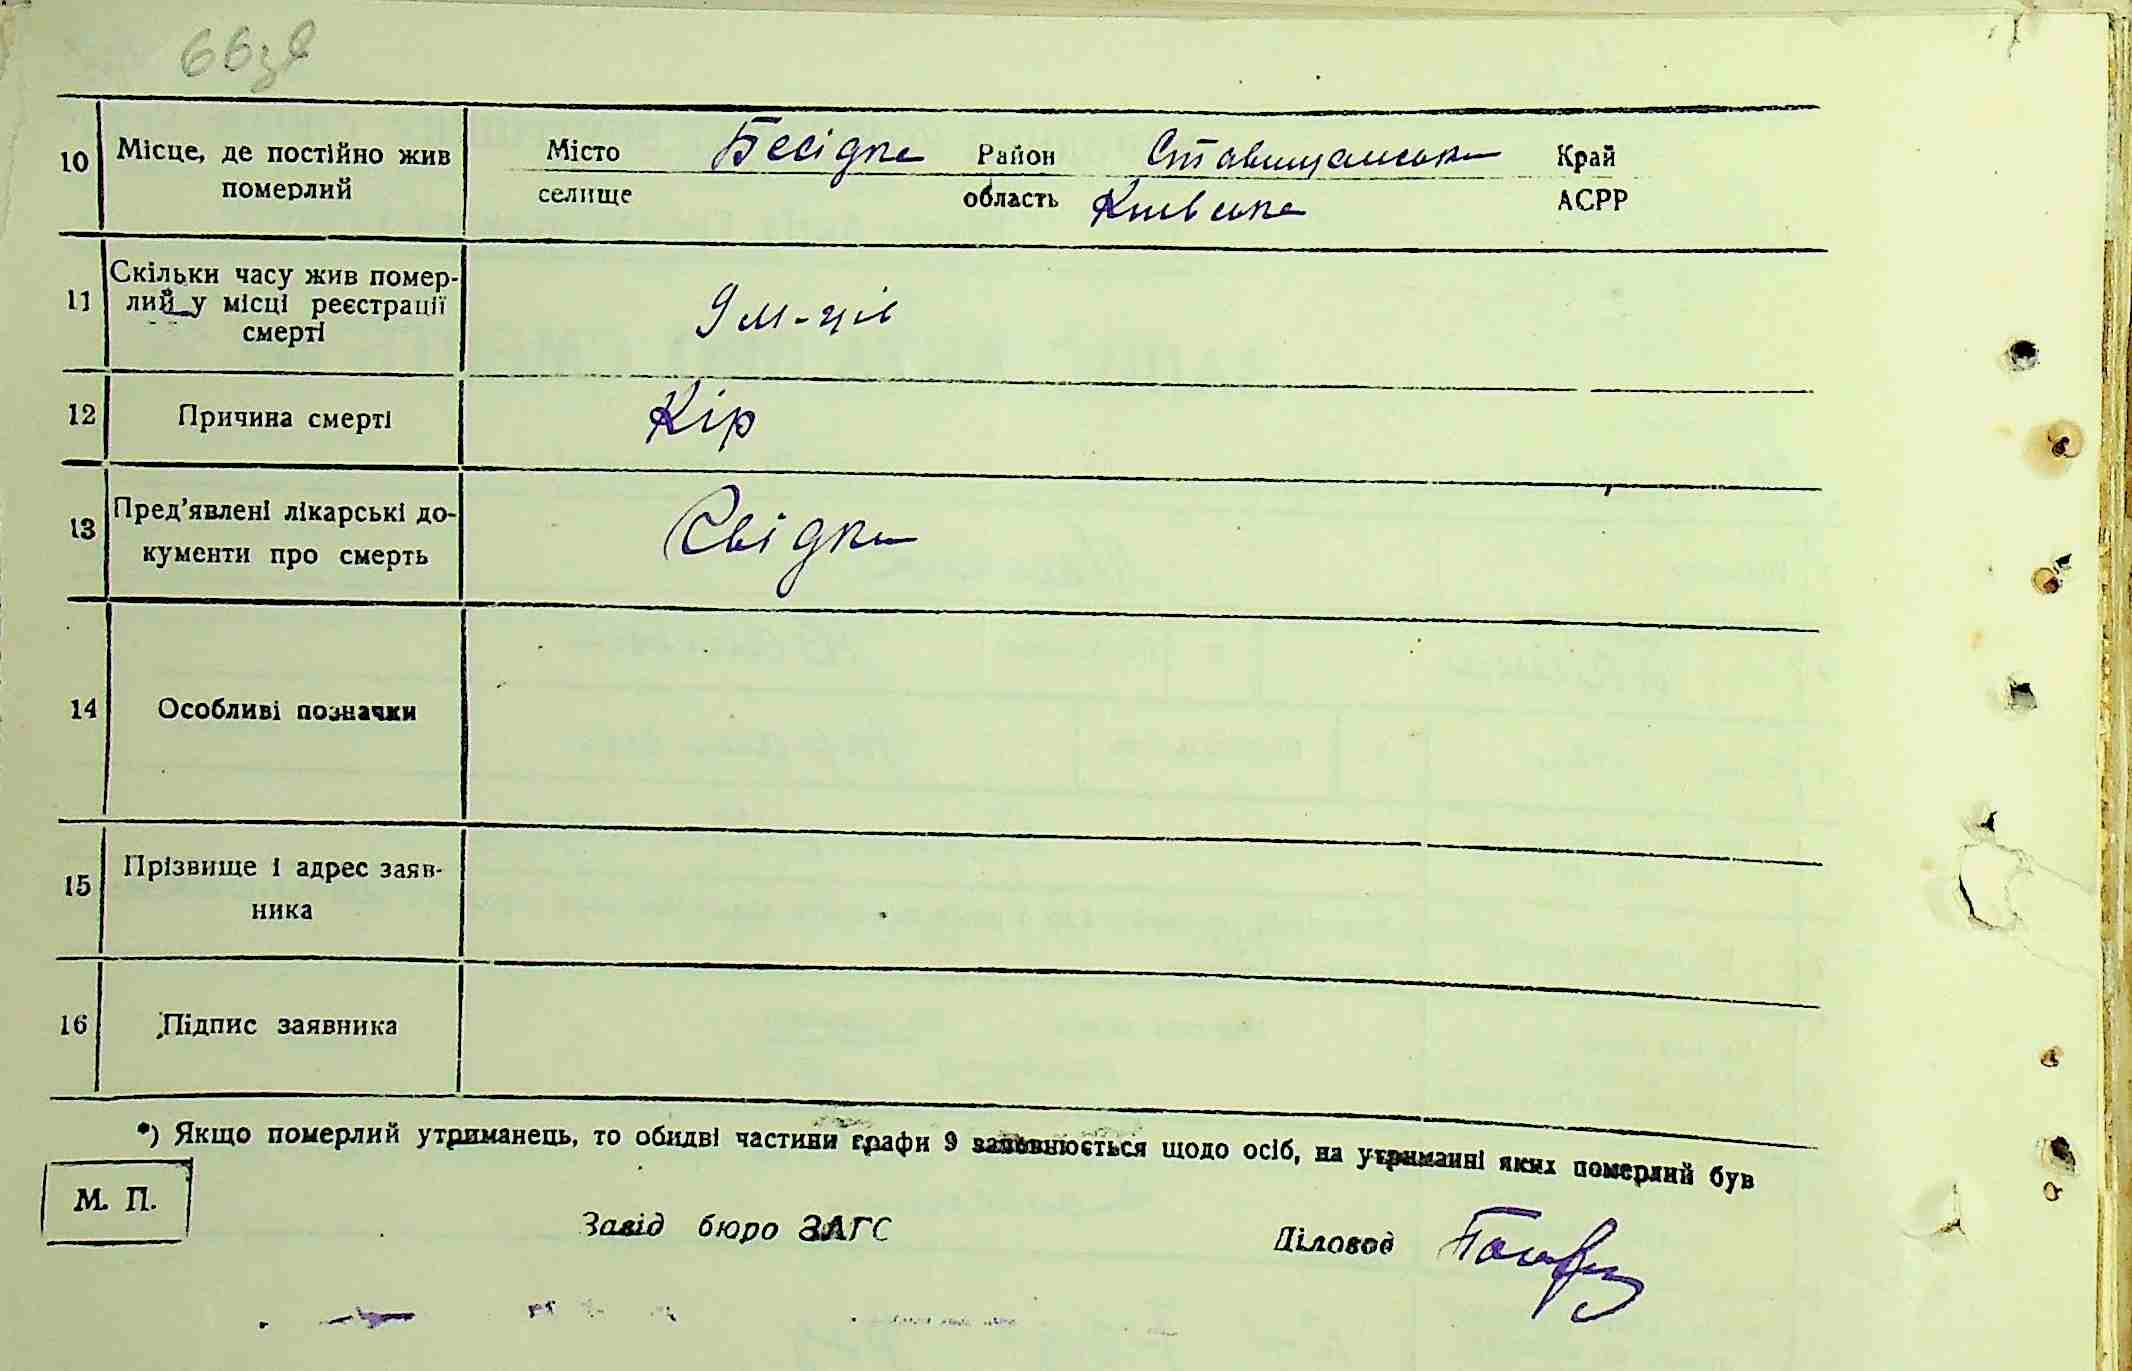 66зв
10 Місце, де постійно жив померлий Місто Бесідка Район Ставищанськ Край
селище область Київська АСРР
11 Скільки часу жив помер-
лий у місці реєстрації
смерті 9 м-ців
12 Причина смерті Кір
13 Пред'явлені лікарські до-
кументи про смерть Свідки
14 Особливі позначки
15 Прізвище і адрес заяв-
ника
16 Підпис заявника
*) Якщо померлий утриманець, то обидві частини графи 9 заповнюється щодо осіб, на утриманні яких померлий був
М. П.
Завід бюро ЗАГС Діловод